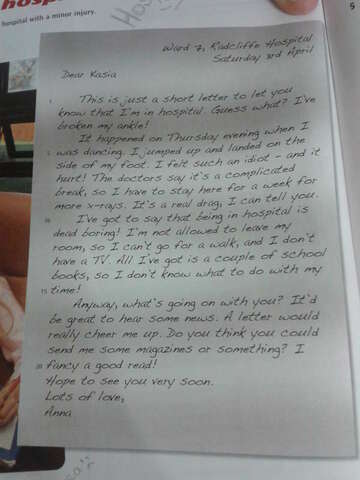 hosp
hospital with a minor injury.
Hos
9
Ward 7, Radcliffe Hospital
Saturday 3rd April
Dear Kasia
1 This is just a short letter to let you
know that I'm in hospital. Guess what? I've
broken my ankle!
It happened on Thursday evening when I
5 was dancing. I jumped up and landed on the
side of my foot. I felt such an idiot – and it
hurt! The doctors say it's a complicated
break, so I have to stay here for a week for
more x-rays. It's a real drag, I can tell you.
10 I've got to say that being in hospital is
dead boring! I'm not allowed to leave my
room, so I can't go for a walk, and I don't
have a TV. All I've got is a couple of school
books, so I don't know what to do with my
15 time!
Anyway, what's going on with you? It'd
be great to hear some news. A letter would
really cheer me up. Do you think you could
send me some magazines or something? I
20 fancy a good read!
Hope to see you very soon.
Lots of love,
Anna